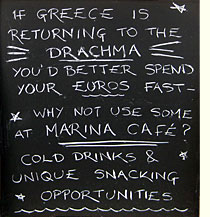 IF GREECE IS
RETURNING TO THE
DRACHMA
YOU'D BETTER SPEND
YOUR EUROS FAST-
WHY NOT USE SOME
AT MARINA CAFÉ?
COLD DRINKS &
UNIQUE SNACKING
OPPORTUNITIES